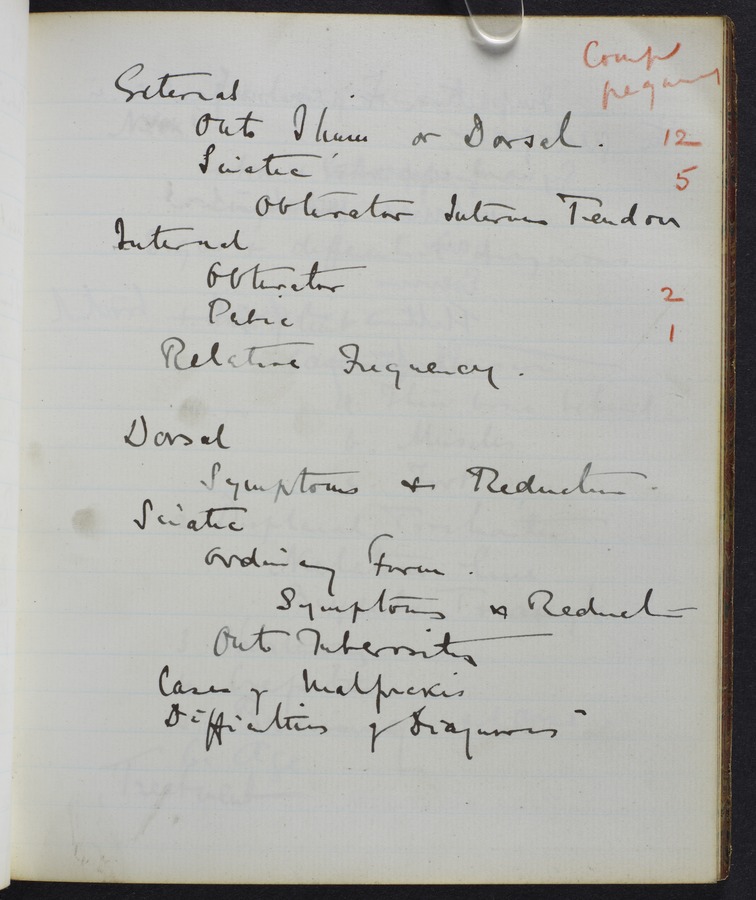 Compl
frequency
External
Onto Ilium or Dorsal. 12
Sciatic 5
Obturator Internus Tendon
Internal
Obturator 2
Pubic 1
Relative Frequency.
Dorsal
Symptoms & Reduction.
Sciatic
Ordinary Form.
Symptoms & Reduct
Onto Tuberosities
Cases of Malpraxis
Difficulties of Diagnosis